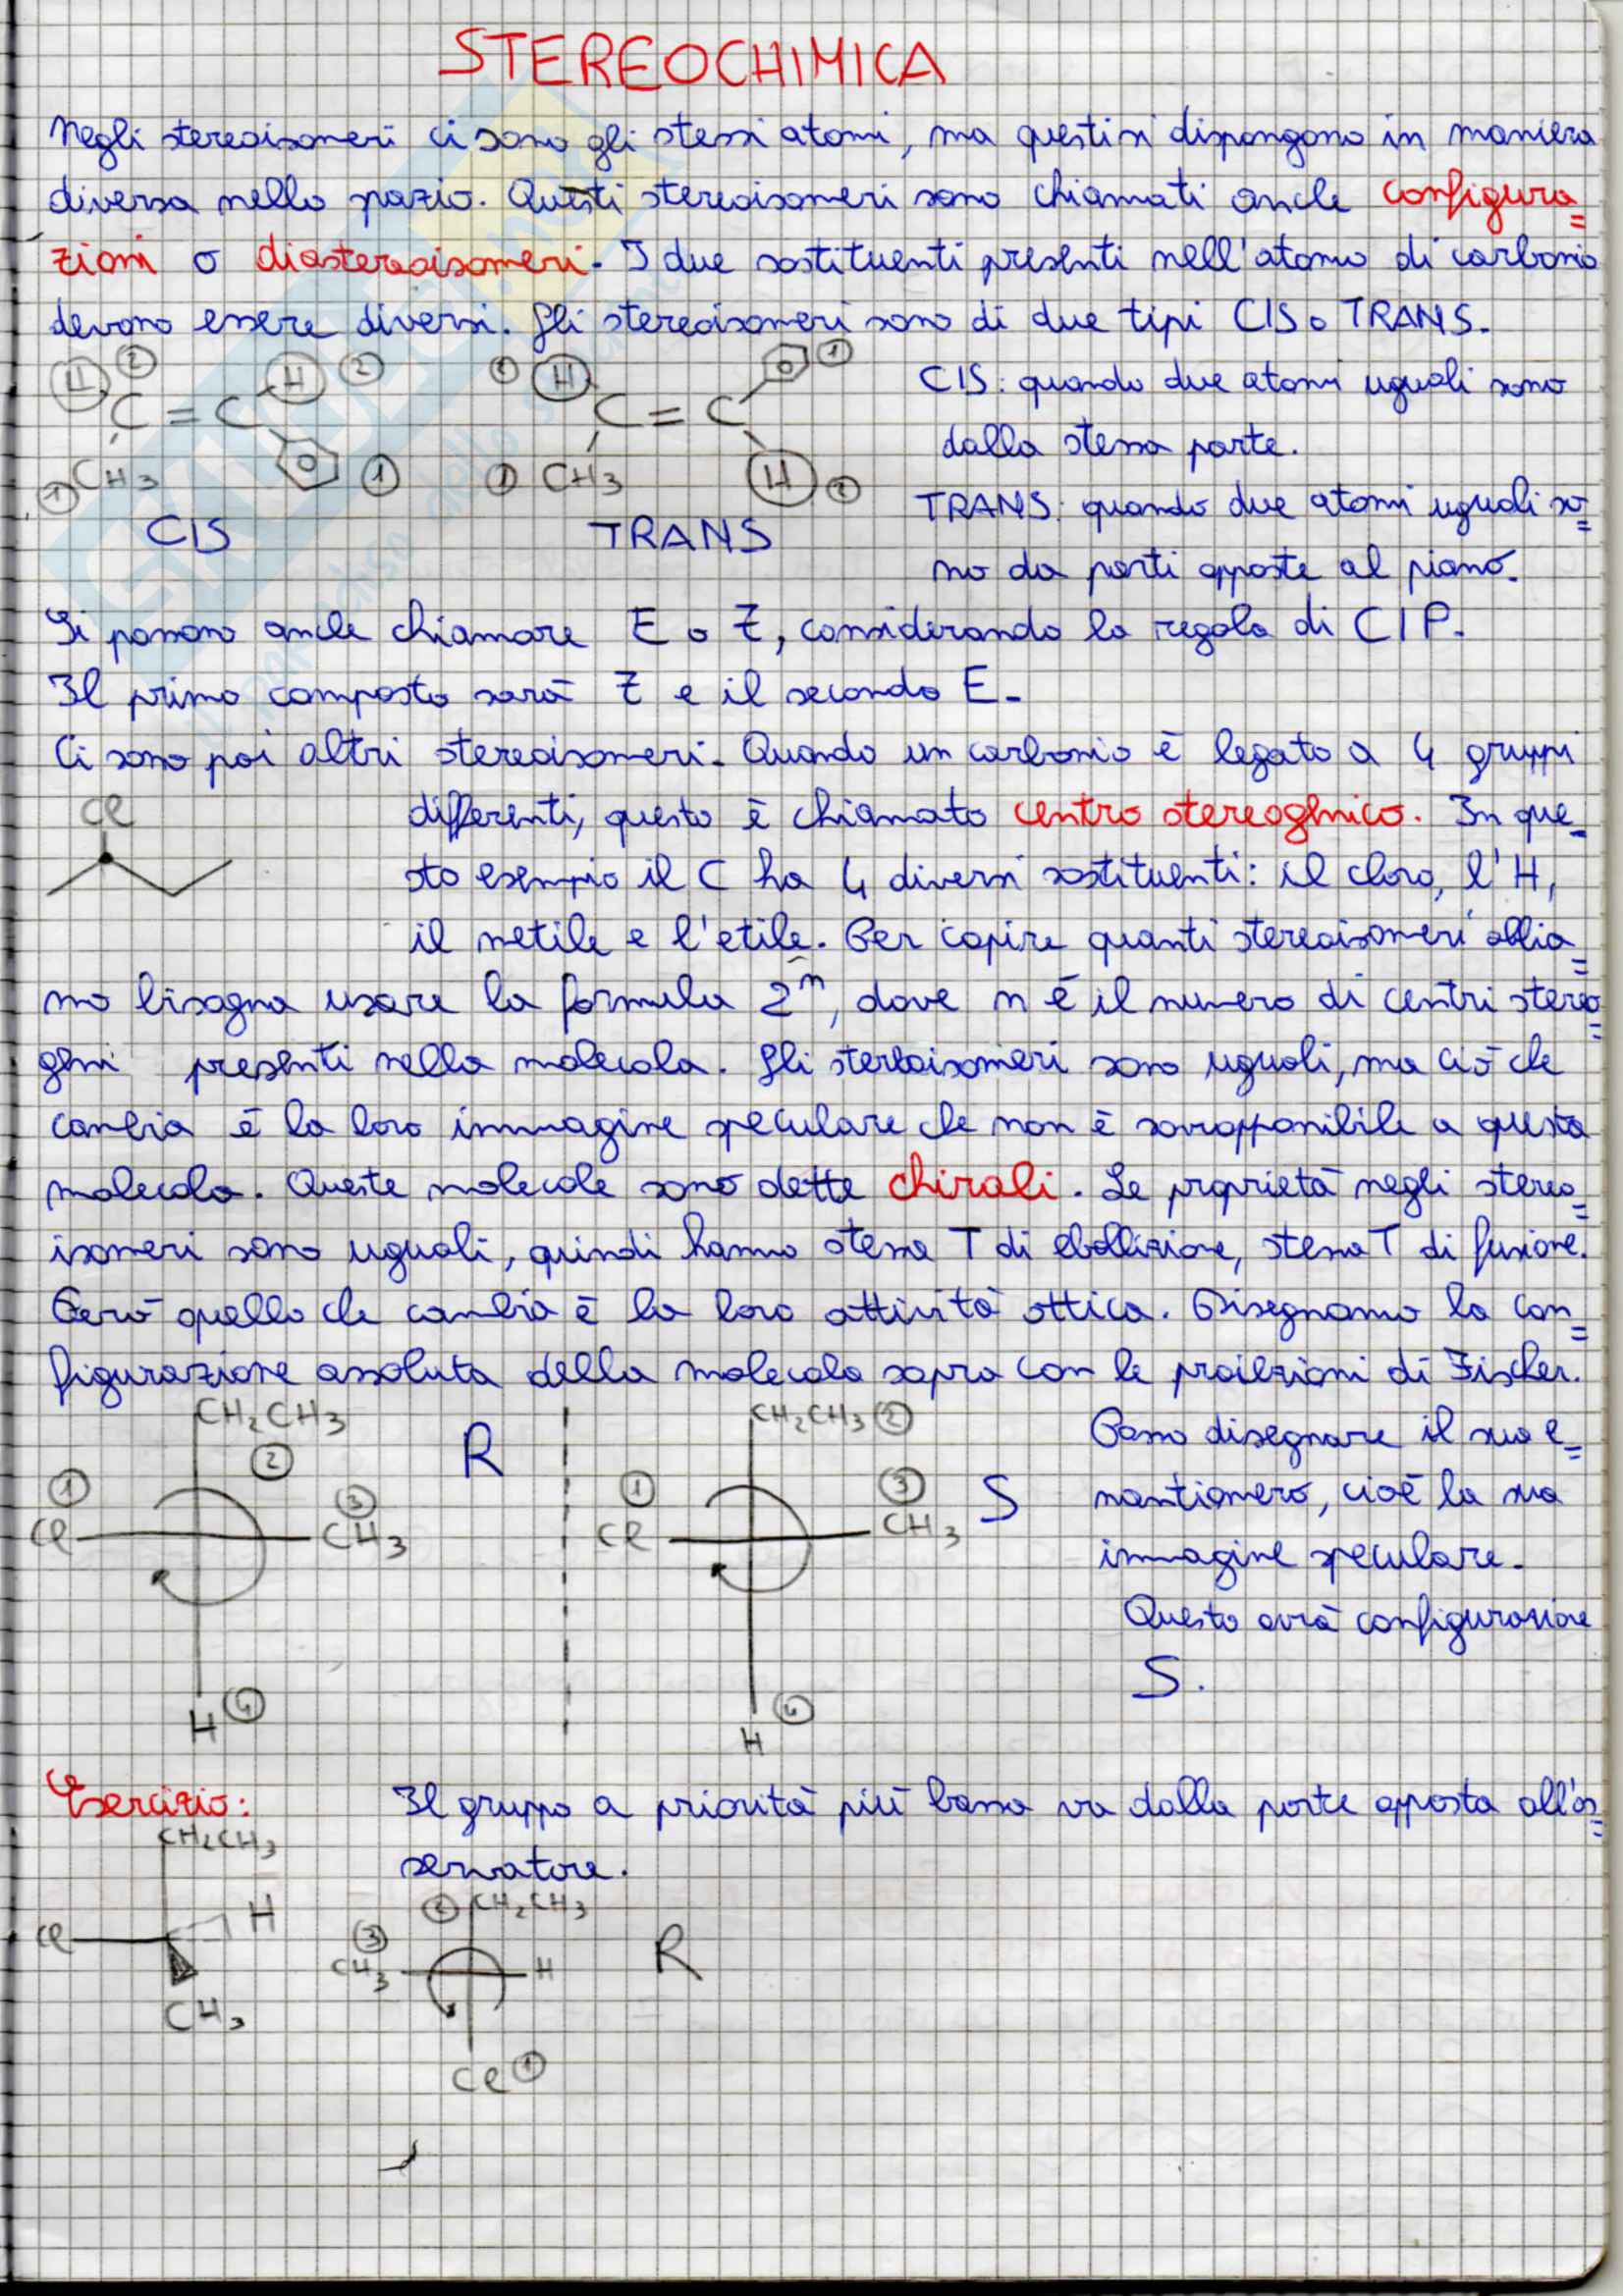 STEREOCHIMICA
Negli stereoisomeri ci sono gli stessi atomi, ma questi si dispongono in maniera
diversa nello spazio. Questi stereoisomeri sono chiamati anche configura=
zioni o diastereoisomeri. I due sostituenti presenti nell'atomo di carbonio
devono essere diversi. Gli stereoisomeri sono di due tipi CIS o TRANS.
H ② H ② ② H ①
C = C C = C
① CH3 ① ① CH3 H ②
CIS TRANS
CIS: quando due atomi uguali sono
dalla stessa parte.
TRANS: quando due atomi uguali so=
no da parti opposte al piano.
Si possono anche chiamare E o Z, considerando la regola di CIP.
Il primo composto sarà Z e il secondo E.
Ci sono poi altri stereoisomeri. Quando un carbonio è legato a 4 gruppi
Cl
differenti, questo è chiamato centro stereogenico. In que=
sto esempio il C ha 4 diversi sostituenti: il cloro, l'H,
il metile e l'etile. Per capire quanti stereoisomeri abbia=
mo bisogna usare la formula 2ⁿ, dove n è il numero di centri stereo=
geni presenti nella molecola. Gli stereoisomeri sono uguali, ma ciò che
cambia è la loro immagine speculare che non è sovrapponibile a questa
molecola. Queste molecole sono dette chirali. Le proprietà negli stereo=
isomeri sono uguali, quindi hanno stessa T di ebollizione, stessa T di fusione.
Però quello che cambia è la loro attività ottica. Disegnamo la con=
figurazione assoluta della molecola sopra con le proiezioni di Fischer.
CH2CH3
②
① R
Cl ③ CH3
H ④
CH2CH3 ②
① ③ S
Cl CH3
H ④
Posso disegnare il suo e=
nantiomero, cioè la sua
immagine speculare.
Questo avrà configurazione
S.
Esercizio:
Il gruppo a priorità più bassa va dalla parte opposta all'os=
servatore.
CH2CH3
Cl H
CH3
② CH2CH3
③ CH3 H R
Cl ①